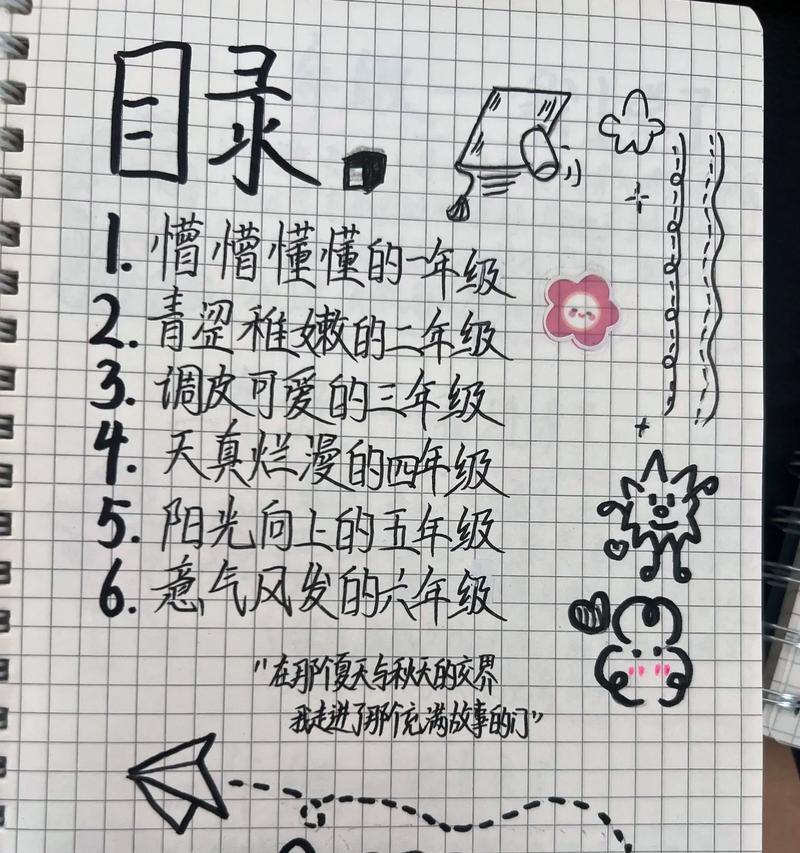 目录.
1. 懵懵懂懂的一年级
2. 青涩稚嫩的二年级
3. 调皮可爱的三年级
4. 天真烂漫的四年级
5. 阳光向上的五年级
6. 意气风发的六年级
"在那个夏天与秋天的交界
我走进了那个充满故事的门"